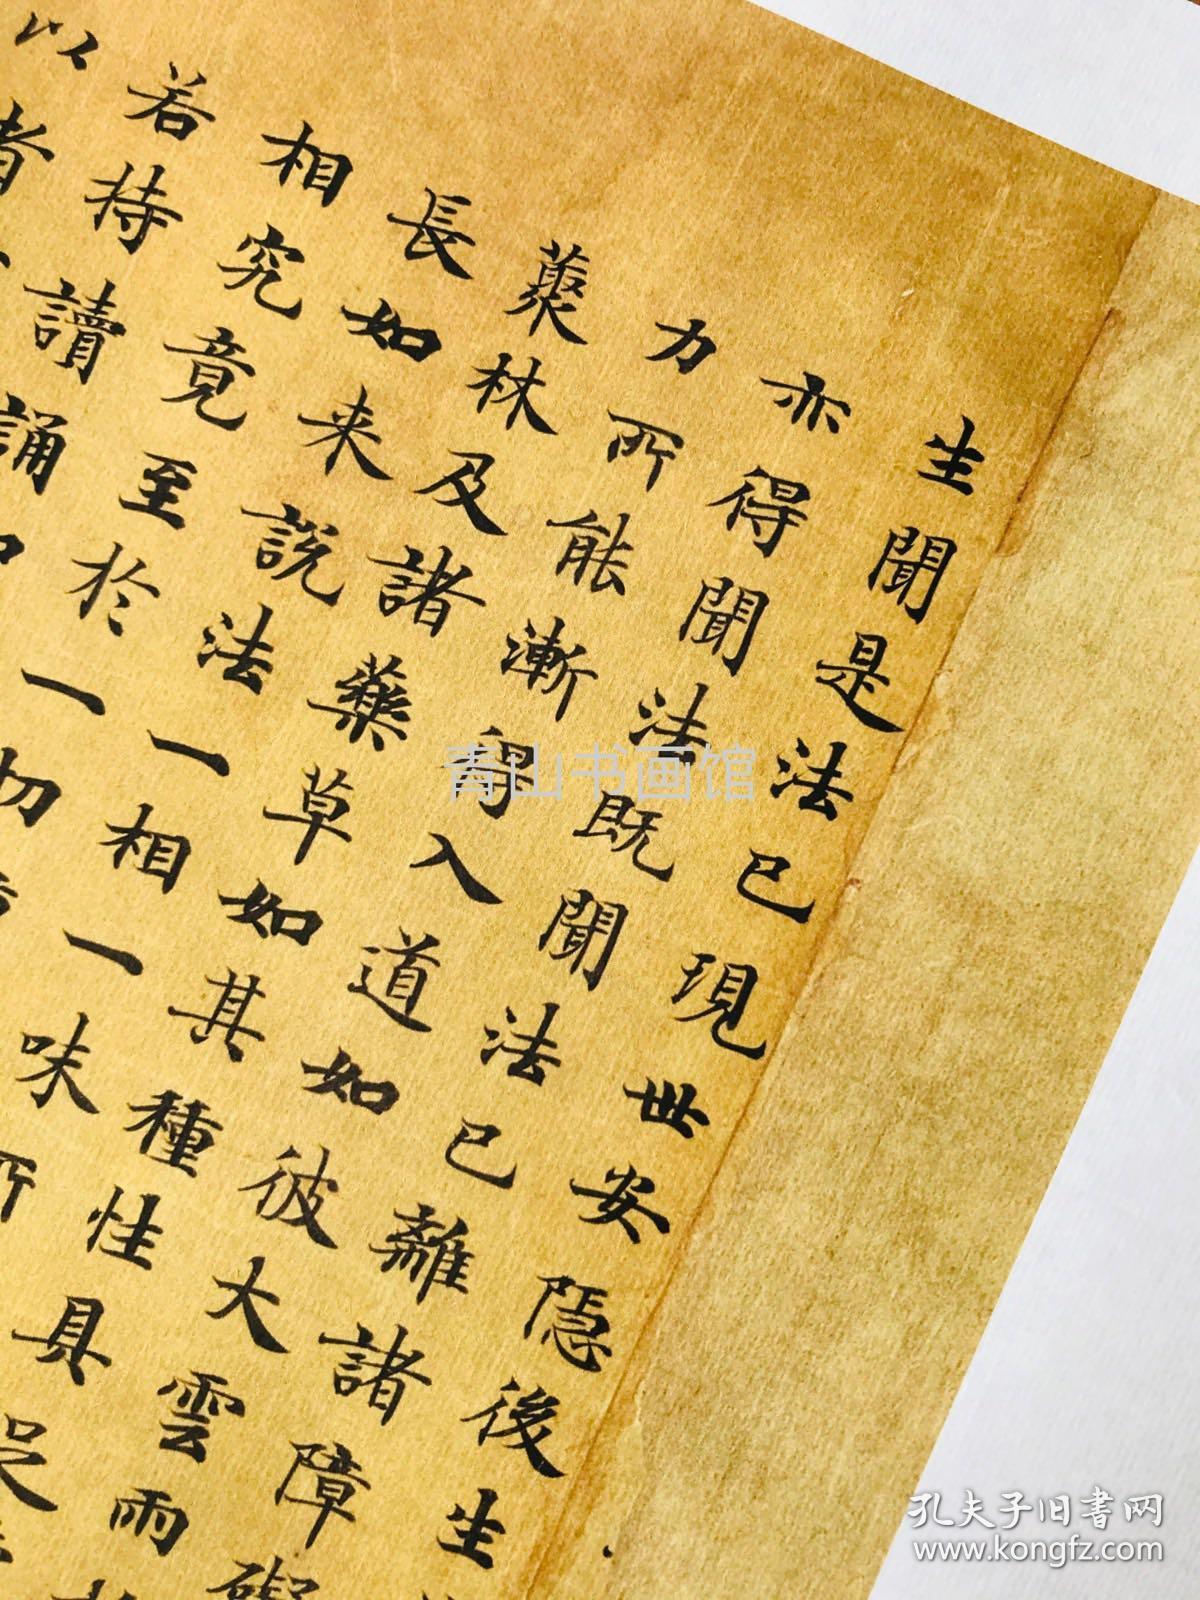 生聞是法已現世安隱後生
亦得聞法既聞法已離諸障礙
力所能漸得入道如彼大雲雨
藂林及諸藥草如其種性具足
長如来說法一相一味所
相究竟至於一切
若持讀誦
以者
青山书画馆
孔夫子旧书网
www.kongfz.com